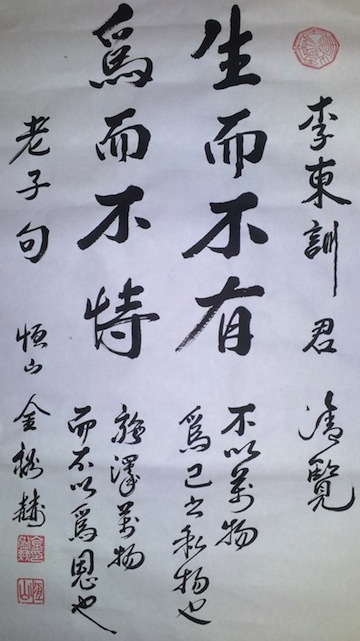 李東訓君 清覽
生而不有
不以萬物
爲己之私物也
爲而不恃
施澤萬物
而不以爲恩也
老子句 恒山 金